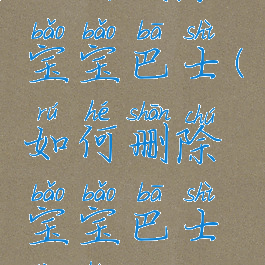 bǎo bǎo bā shì
宝宝巴士(
rú hé shān chú
如何删除
bǎo bǎo bā shì
宝宝巴士